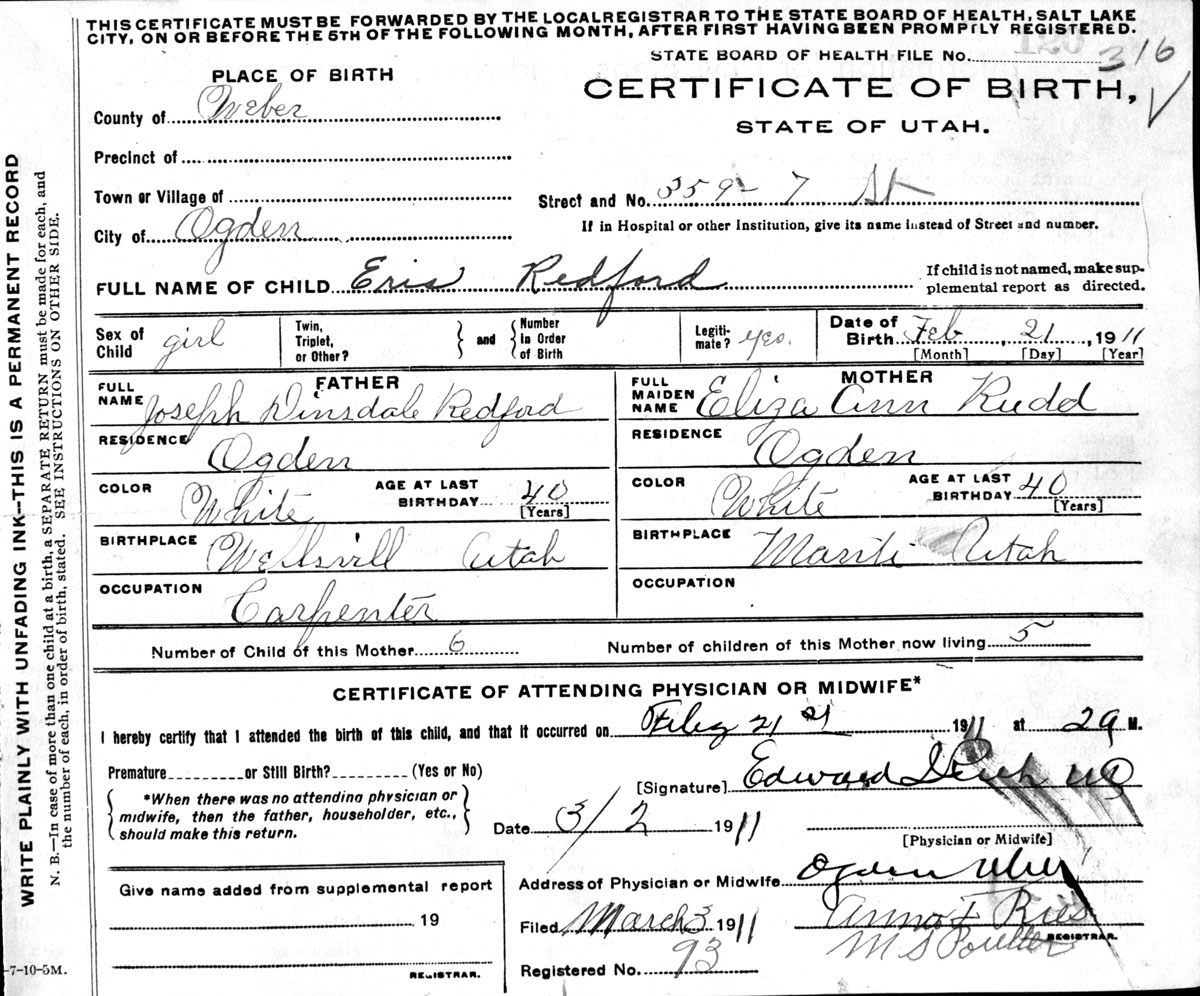 THIS CERTIFICATE MUST BE FORWARDED BY THE LOCAL REGISTRAR TO THE STATE BOARD OF HEALTH, SALT LAKE
CITY, ON OR BEFORE THE 5TH OF THE FOLLOWING MONTH, AFTER FIRST HAVING BEEN PROMPTLY REGISTERED.
STATE BOARD OF HEALTH FILE No. 316
PLACE OF BIRTH
CERTIFICATE OF BIRTH,
STATE OF UTAH.
County of Weber
Precinct of
Town or Village of
Street and No. 359 - 7 St
City of Ogden
If in Hospital or other Institution, give its name instead of Street and number.
FULL NAME OF CHILD Eris Redford
If child is not named, make sup-
plemental report as directed.
Sex of Child girl
Twin, Triplet, or Other?
and
Number In Order of Birth
Legiti-mate? yes.
Date of Birth Feb, 21, 1911
[Month] [Day] [Year]
FATHER
FULL NAME Joseph Dinsdale Redford
RESIDENCE Ogden
COLOR White
AGE AT LAST BIRTHDAY 40
[Years]
BIRTHPLACE Wellsvill Utah
OCCUPATION Carpenter
MOTHER
FULL MAIDEN NAME Eliza Ann Rudd
RESIDENCE Ogden
COLOR White
AGE AT LAST BIRTHDAY 40
[Years]
BIRTHPLACE Manti Utah
OCCUPATION
Number of Child of this Mother 6
Number of children of this Mother now living 5
CERTIFICATE OF ATTENDING PHYSICIAN OR MIDWIFE*
I hereby certify that I attended the birth of this child, and that it occurred on 21 1911 at M.
Premature or Still Birth? (Yes or No)
*When there was no attending physician or
midwife, then the father, householder, etc.,
should make this return.
[Signature] Edward
Date 3/2 1911
[Physician or Midwife]
Give name added from supplemental report
19
REGISTRAR.
Address of Physician or Midwife Ogden
Filed March 3 1911
Anna F Ries
M S Poulter
REGISTRAR.
Registered No. 93
-7-10-5M.
WRITE PLAINLY WITH UNFADING INK—THIS IS A PERMANENT RECORD
N. B.—In case of more than one child at a birth, a SEPARATE RETURN must be made for each, and
the number of each, in order of birth, stated. SEE INSTRUCTIONS ON OTHER SIDE.